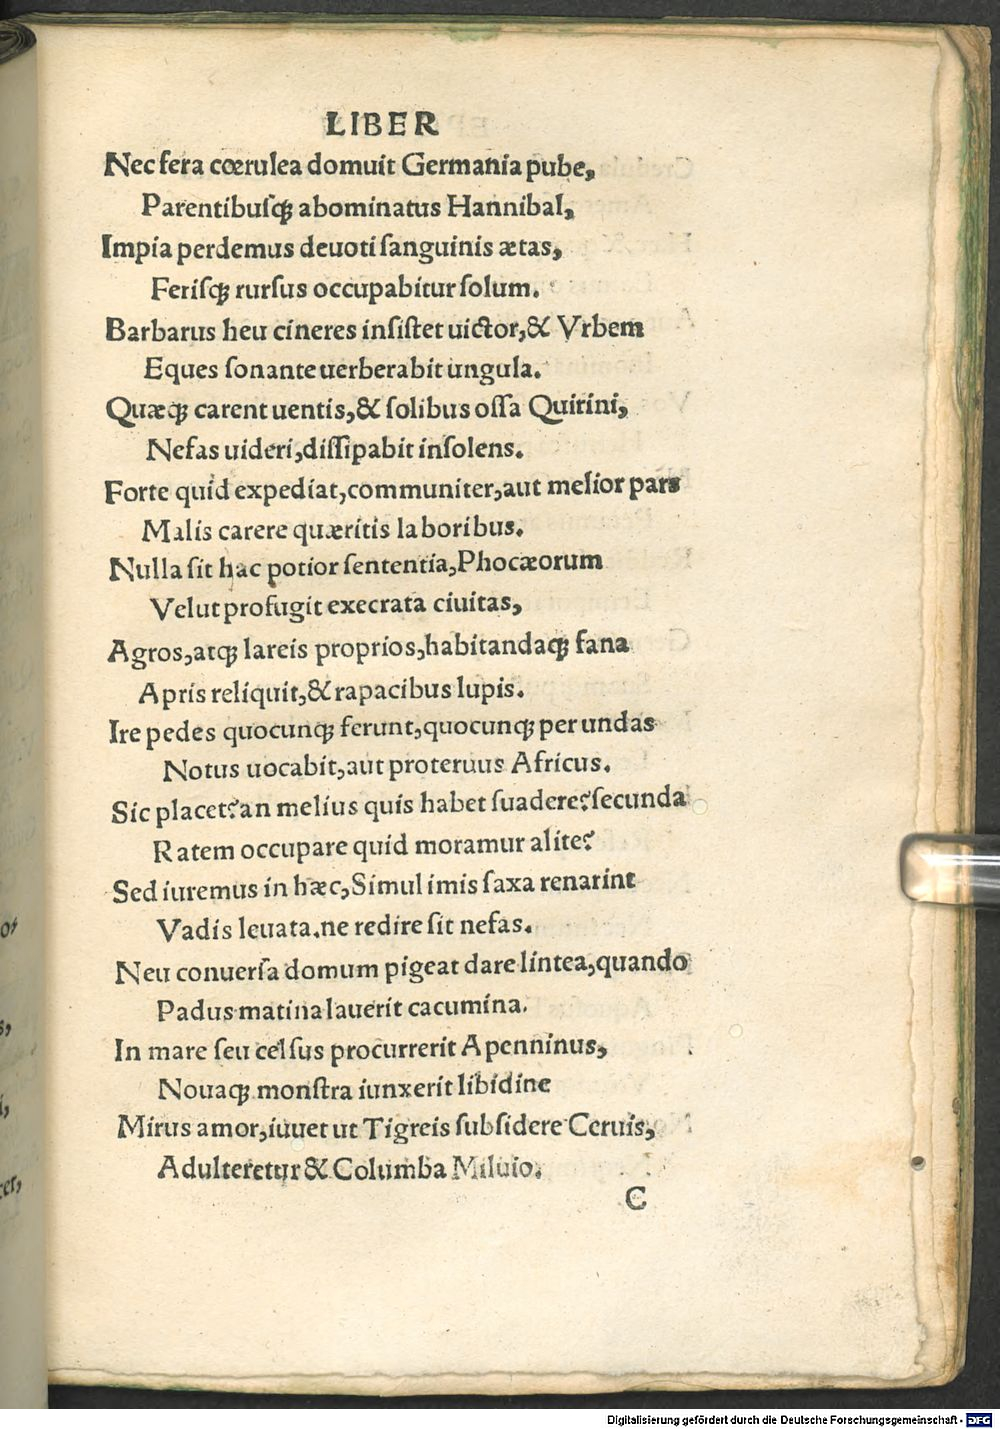 LIBER
Nec fera cœrulea domuit Germania pube,
Parentibusqꝫ abominatus Hannibal,
Impia perdemus deuoti sanguinis ætas,
Ferisqꝫ rursus occupabitur solum.
Barbarus heu cineres insistet uictor,& Vrbem
Eques sonante uerberabit ungula.
Quæqꝫ carent uentis,& solibus ossa Quirini,
Nefas uideri,dissipabit insolens.
Forte quid expediat,communiter,aut melior pars
Malis carere quæritis laboribus.
Nulla sit hac potior sententia,Phocæorum
Velut profugit execrata ciuitas,
Agros,atqꝫ lareis proprios,habitandaqꝫ fana
Apris reliquit,& rapacibus lupis.
Ire pedes quocunqꝫ ferunt,quocunqꝫ per undas
Notus uocabit,aut proteruus Africus.
Sic placet?an melius quis habet suadere?secunda
Ratem occupare quid moramur alite?
Sed iuremus in hæc,Simul imis saxa renarint
Vadis leuata.ne redire sit nefas.
Neu conuersa domum pigeat dare lintea,quando
Padus matina lauerit cacumina.
In mare seu celsus procurrerit Apenninus,
Nouaqꝫ monstra iunxerit libidine
Mirus amor,iuuet ut Tigreis subsidere Ceruis,
Adulteretur & Columba Miluio.
C
Digitalisierung gefördert durch die Deutsche Forschungsgemeinschaft - DFG